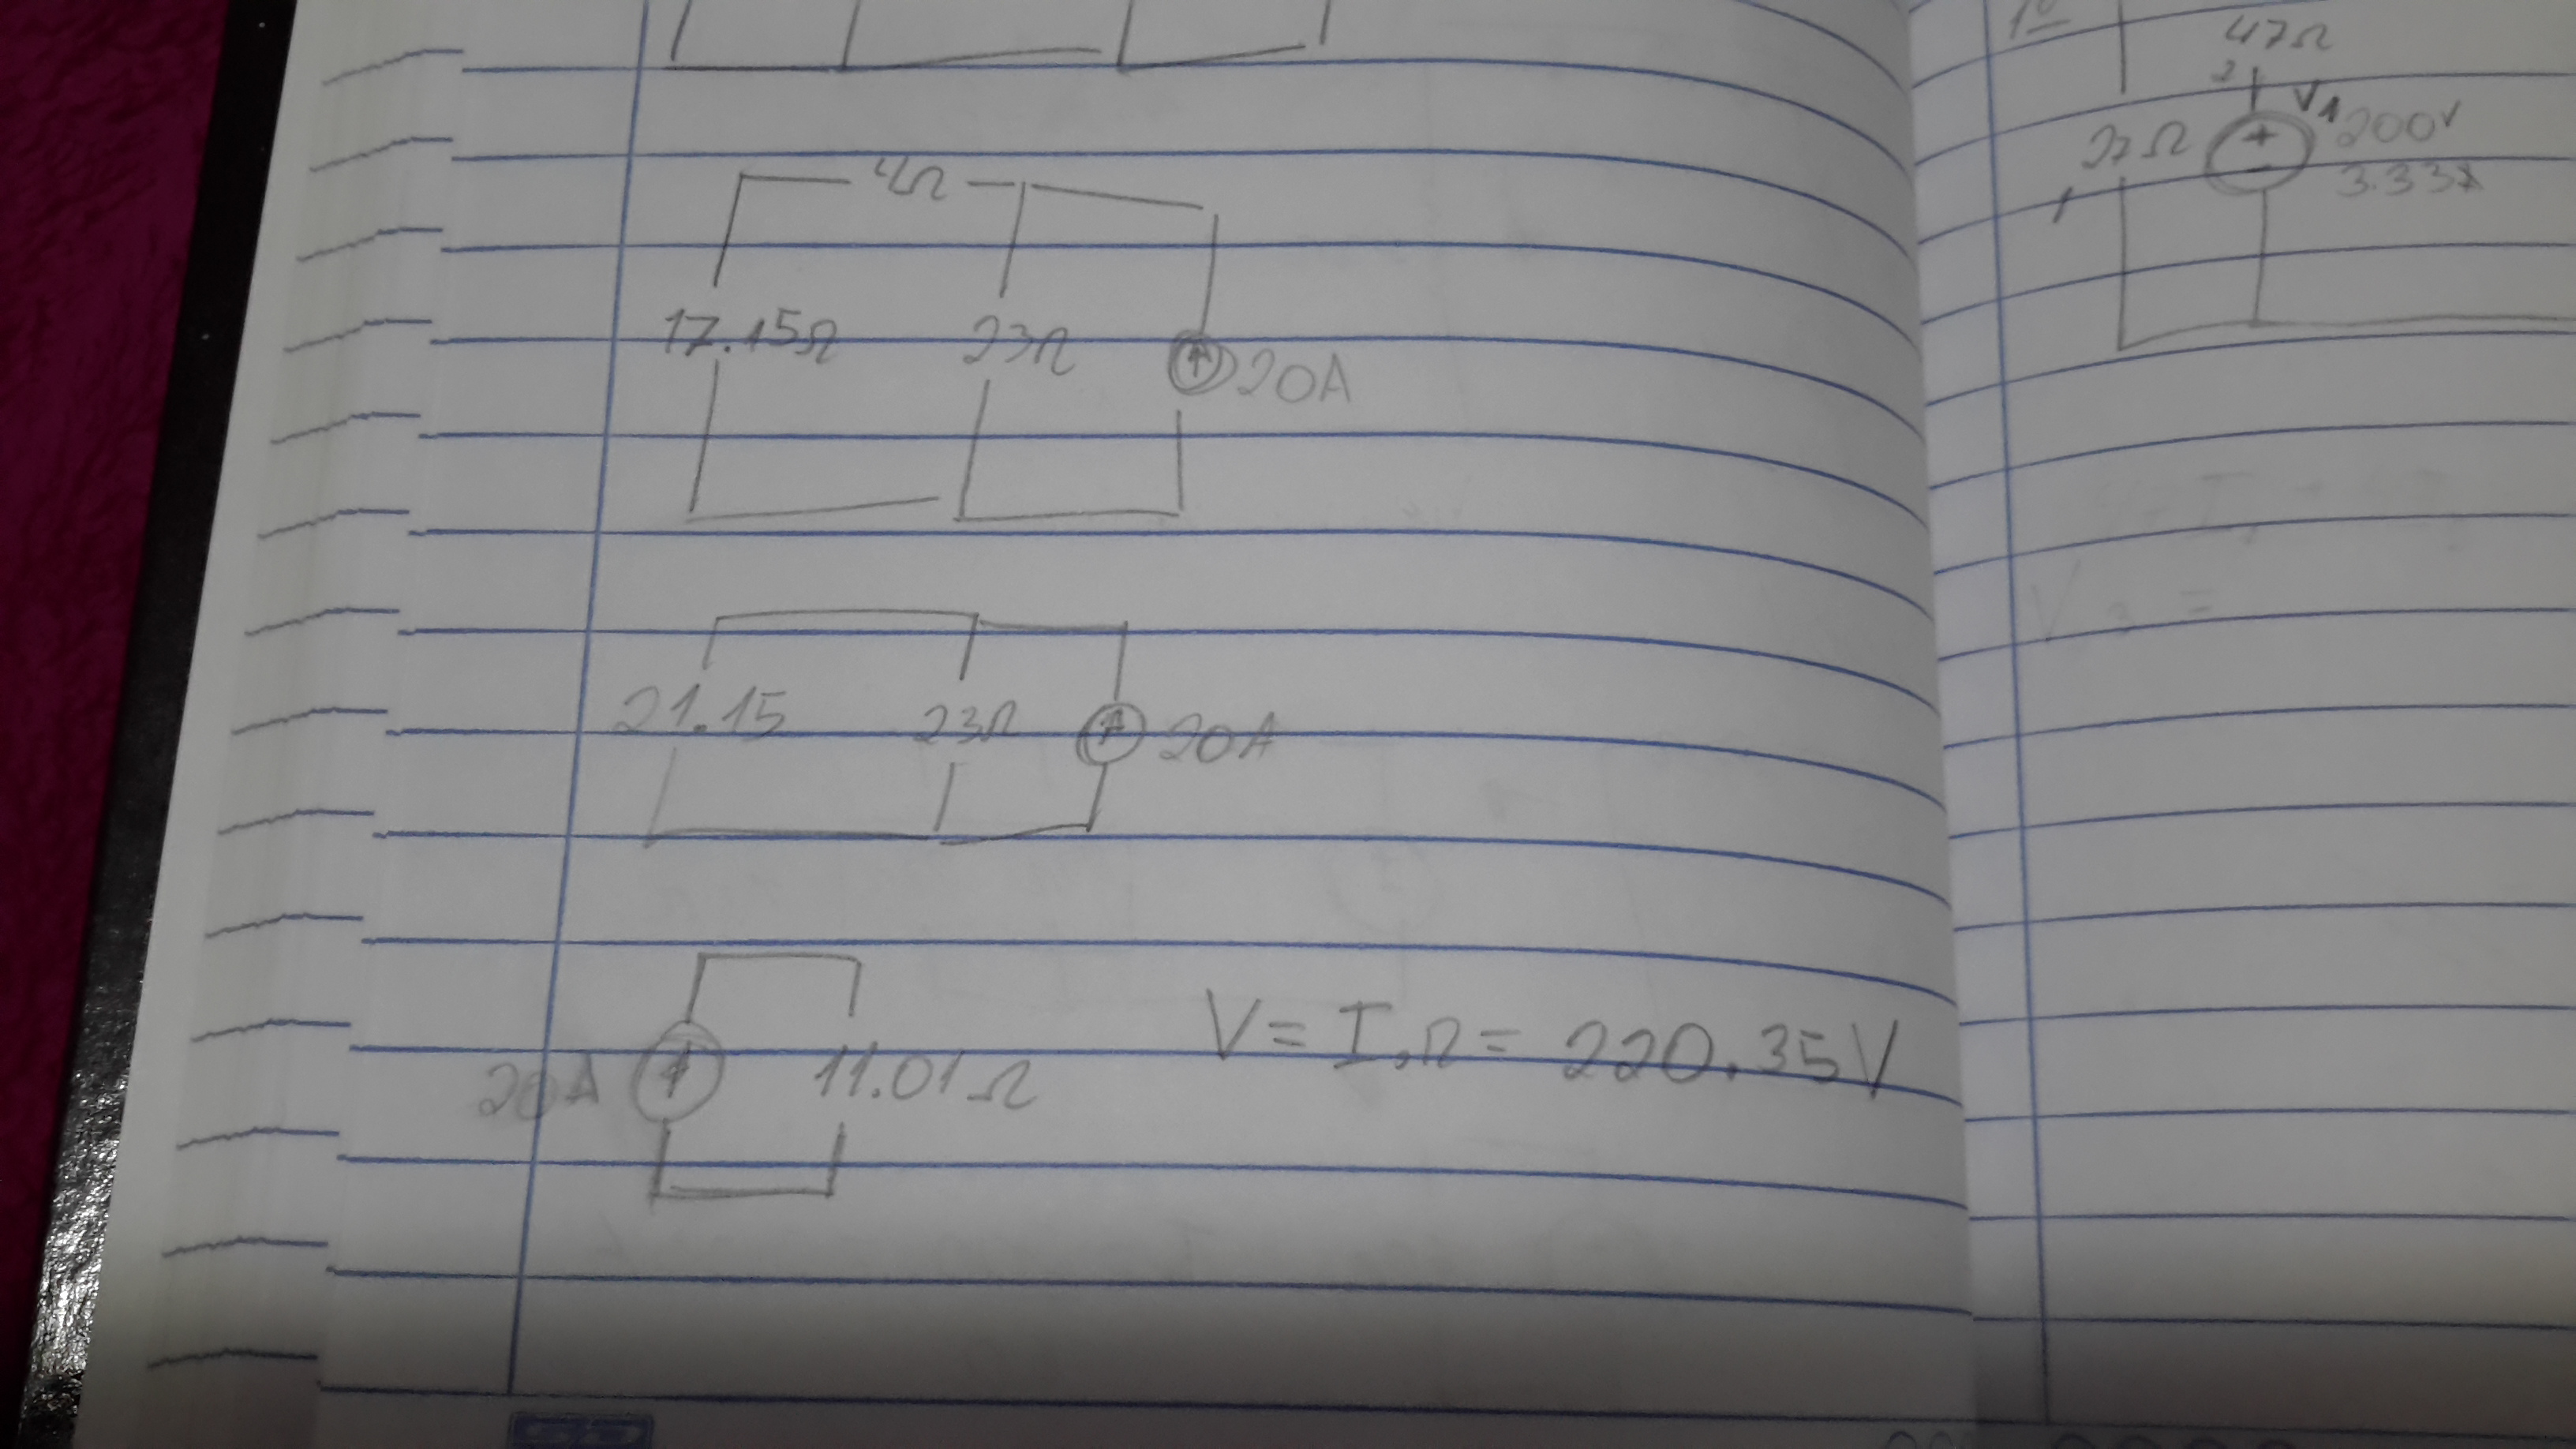 4Ω
17.15Ω 23Ω 20A
21.15 23Ω 20A
20A 11.01Ω V = I.Ω = 220.35V
1º
47Ω
2
V1
27Ω 200V
3.33A